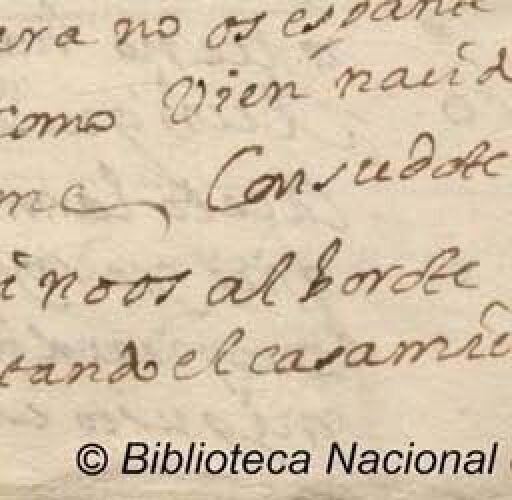 era no os espant
como Vien nacid
me Con su dote
i no os al borote
tando el casamie
© Biblioteca Nacional